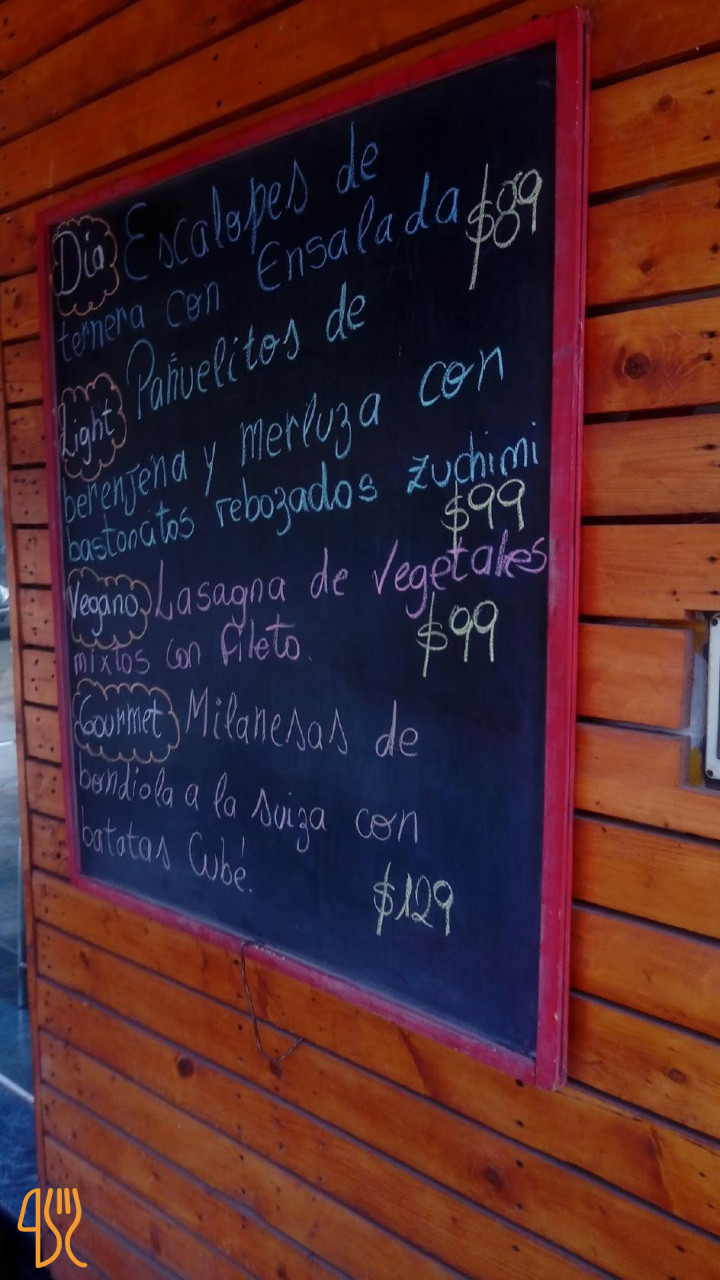 Día Escalopes de
ternera con Ensalada $89
Light Pañuelitos de
berenjena y merluza con
bastoncitos rebozados zuchimi
$99
Vegano Lasagna de vegetales
mixtos con fileto. $99
Gourmet Milanesas de
bondiola a la suiza con
batatas Cubé.
$129